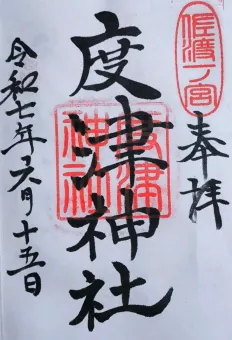 佐渡ノ宮
奉拝
度津神社
度津神社
令和七年六月十五日